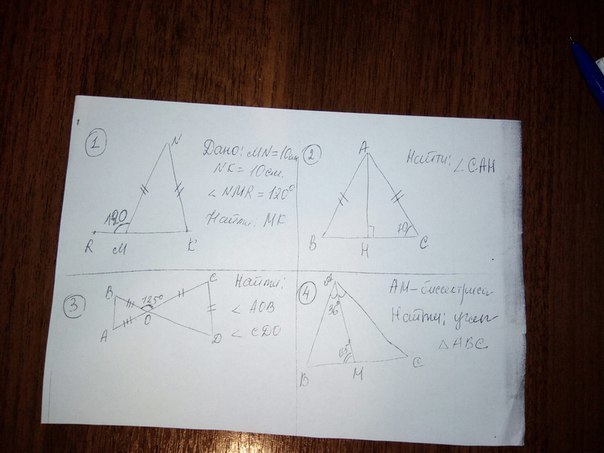 1
N
Дано: MN=10см
NK=10см.
∠NMR=120°
Найти: MK
120
R
M
K
2
A
Найти: ∠CAH
70
B
H
C
3
Найти:
∠AOB
∠CDO
B
C
125°
A
O
D
4
A
AM-биссектриса
Найти: углы
△ABC
36
65°
B
M
C